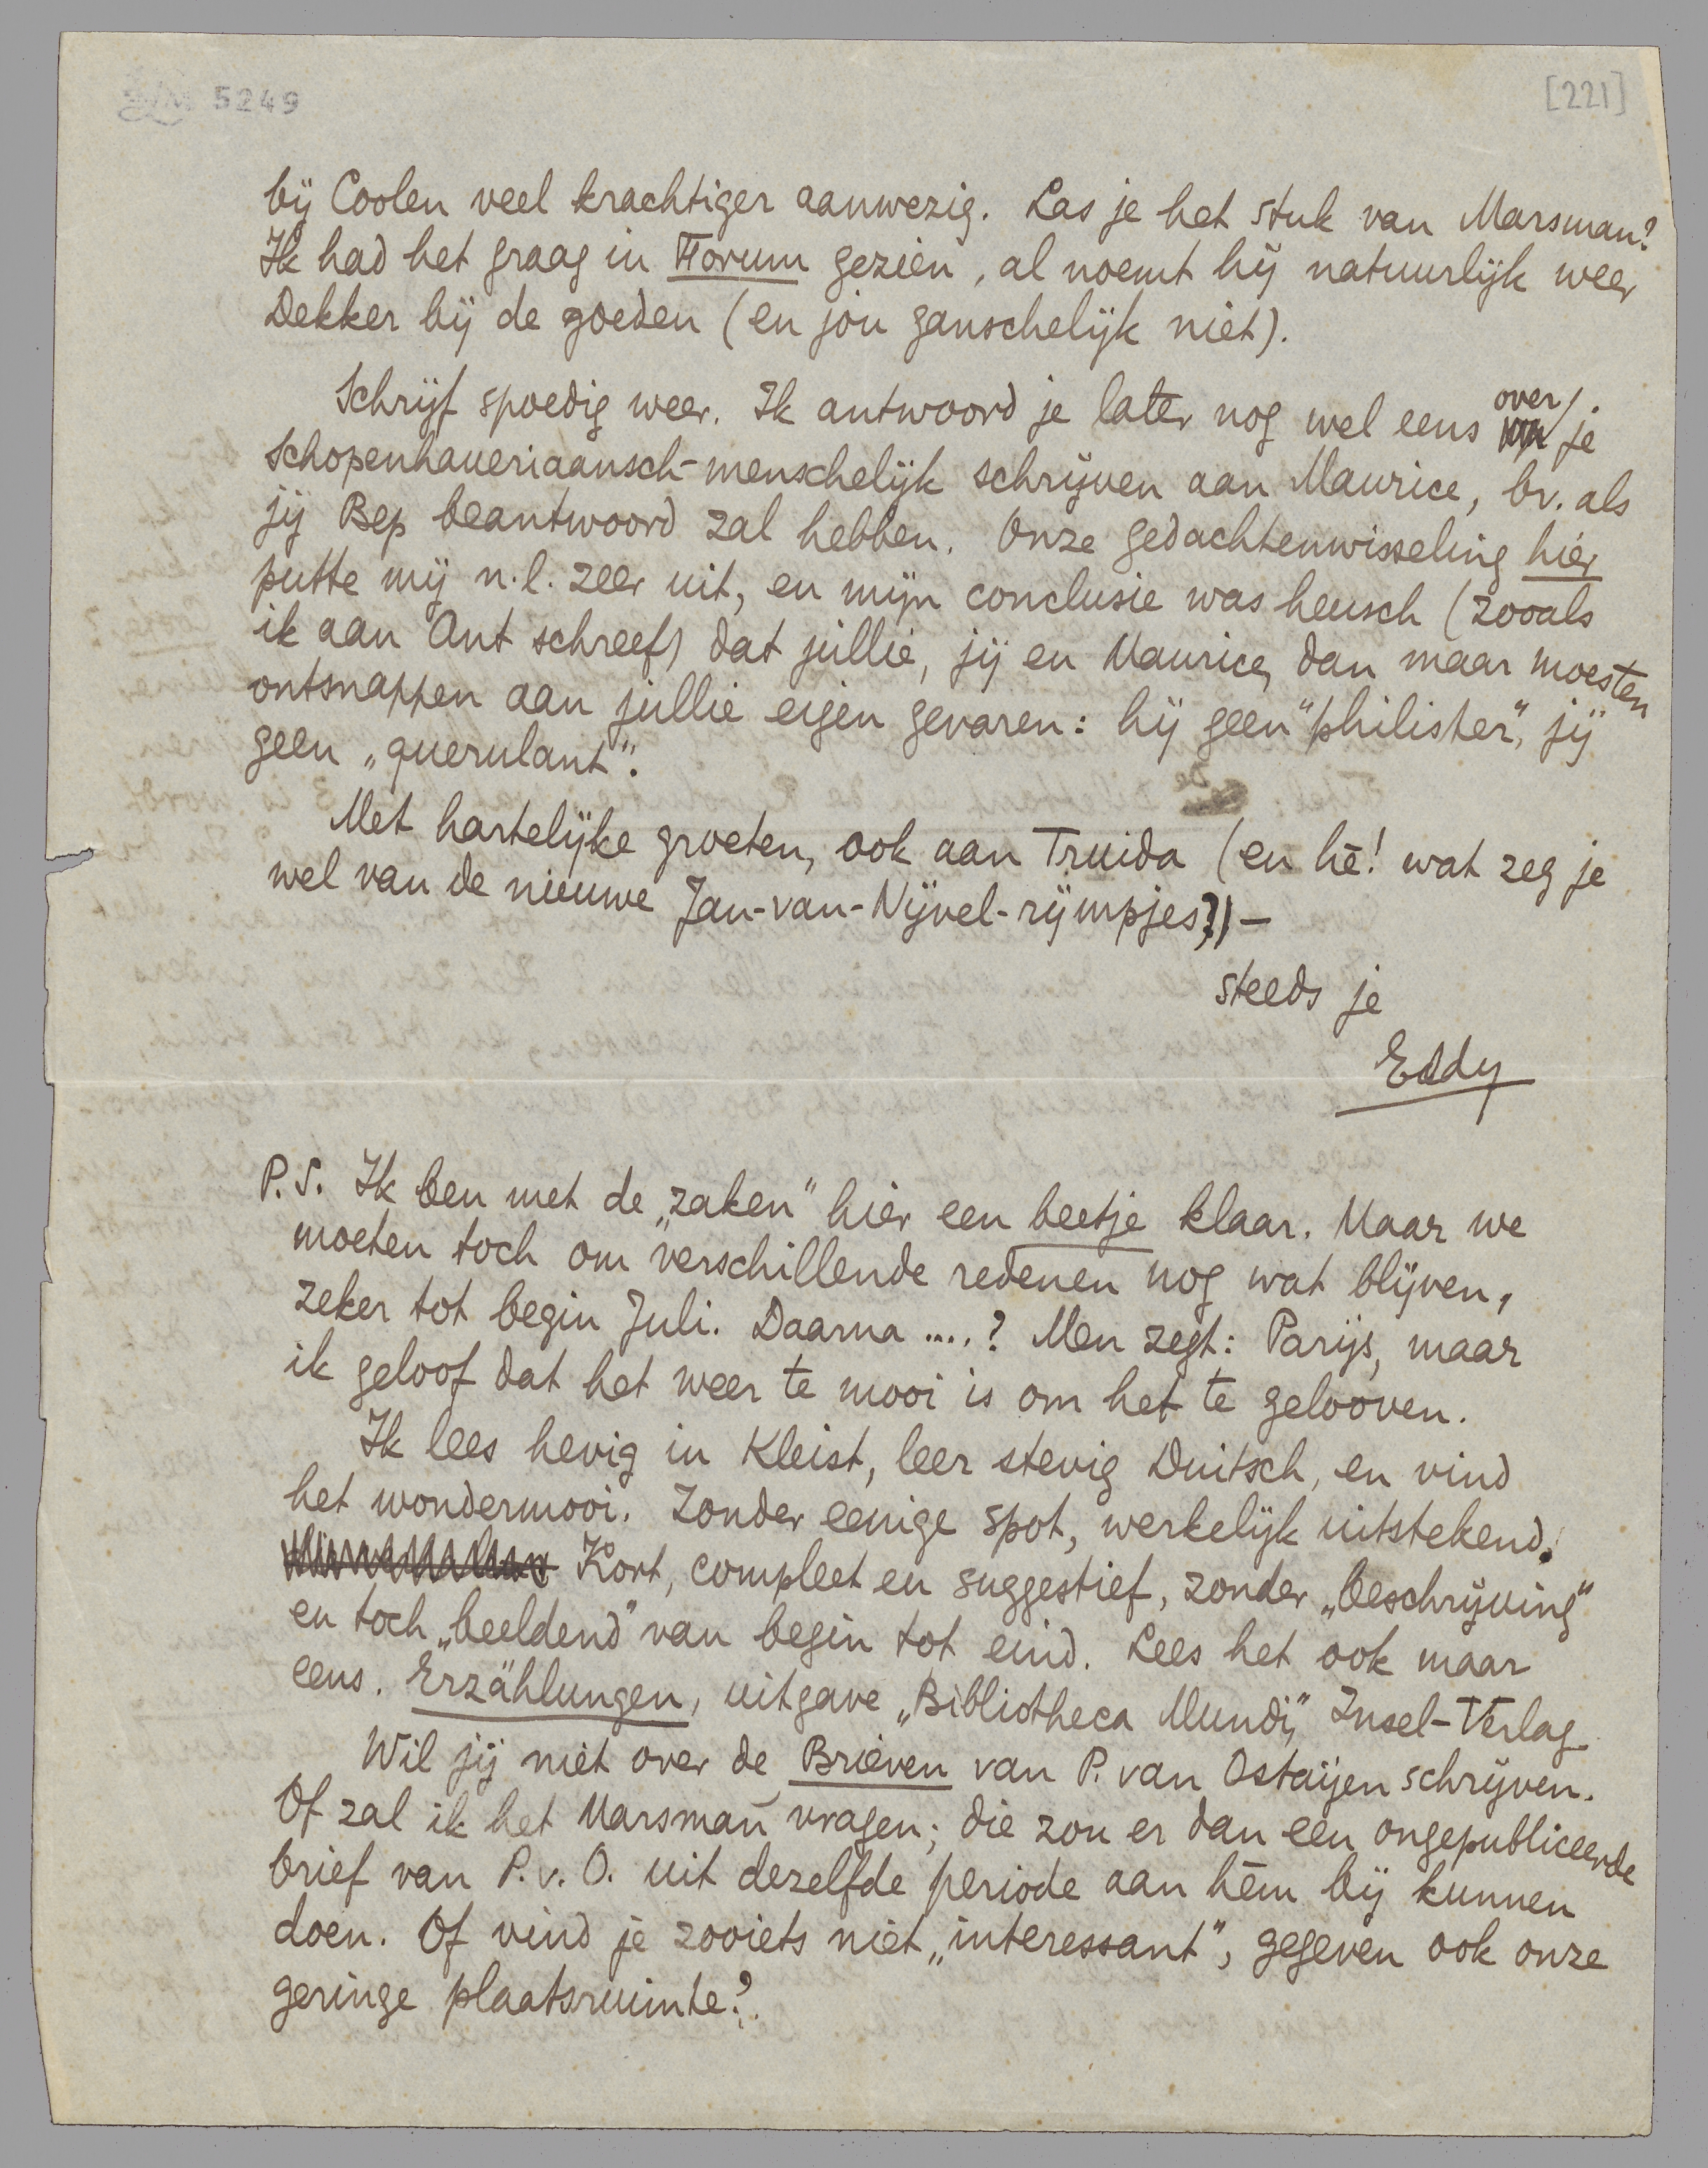 5249
[221]
bij Coolen veel krachtiger aanwezig. Las je het stuk van Marsman?
Ik had het graag in Forum gezien, al noemt hij natuurlijk weer
Dekker bij de goeden (en jou ganschelijk niet).
Schrijf spoedig weer. Ik antwoord je later nog wel eens over je
Schopenhaueriaansch-menschelijk schrijven aan Maurice, bv. als
jij Bep beantwoord zal hebben. Onze gedachtenwisseling hier
putte mij n.l. zeer uit, en mijn conclusie was heusch (zooals
ik aan Ant schreef) dat jullie, jij en Maurice, dan maar moesten
ontsnappen aan jullie eigen gevaren: hij geen "philister", jij
geen „querulant".
Met hartelijke groeten, ook aan Truida (en hè! wat zeg je
wel van de nieuwe Jan-van-Nijvel-rijmpjes?) —
steeds je
Eddy
P.S. Ik ben met de „zaken" hier een beetje klaar. Maar we
moeten toch om verschillende redenen nog wat blijven,
zeker tot begin Juli. Daarna ....? Men zegt: Parijs, maar
ik geloof dat het weer te mooi is om het te gelooven.
Ik lees hevig in Kleist, leer stevig Duitsch, en vind
het wondermooi. Zonder eenige spot, werkelijk uitstekend.
Kort, compleet en suggestief, zonder „beschrijving"
en toch „beeldend" van begin tot eind. Lees het ook maar
eens. Erzählungen, uitgave „Bibliotheca Mundi," Insel-Verlag.
Wil jij niet over de Brieven van P. van Ostaijen schrijven.
Of zal ik het Marsman vragen; die zou er dan een ongepubliceerde
brief van P. v. O. uit dezelfde periode aan hém bij kunnen
doen. Of vind je zooiets niet „interessant", gegeven ook onze
geringe plaatsruimte?.